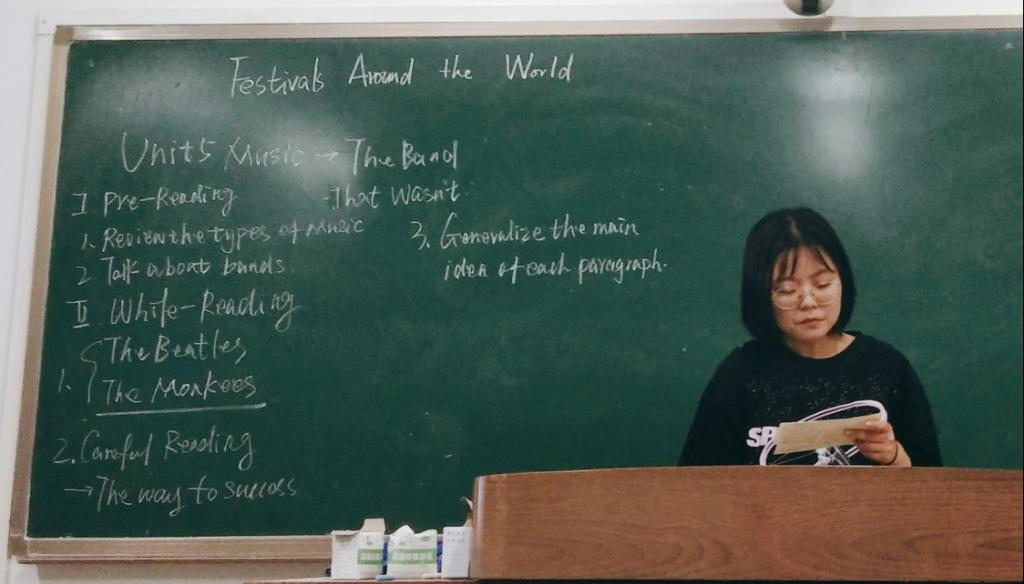 Festivals Around the World
Unit5 Music → The Band
That Wasn't
I Pre-Reading
1. Review the types of music
2. Talk about bands.
II While-Reading
1. The Beatles
The Monkees
2. Careful Reading
→ The way to success
3. Generalize the main
idea of each paragraph.
SP